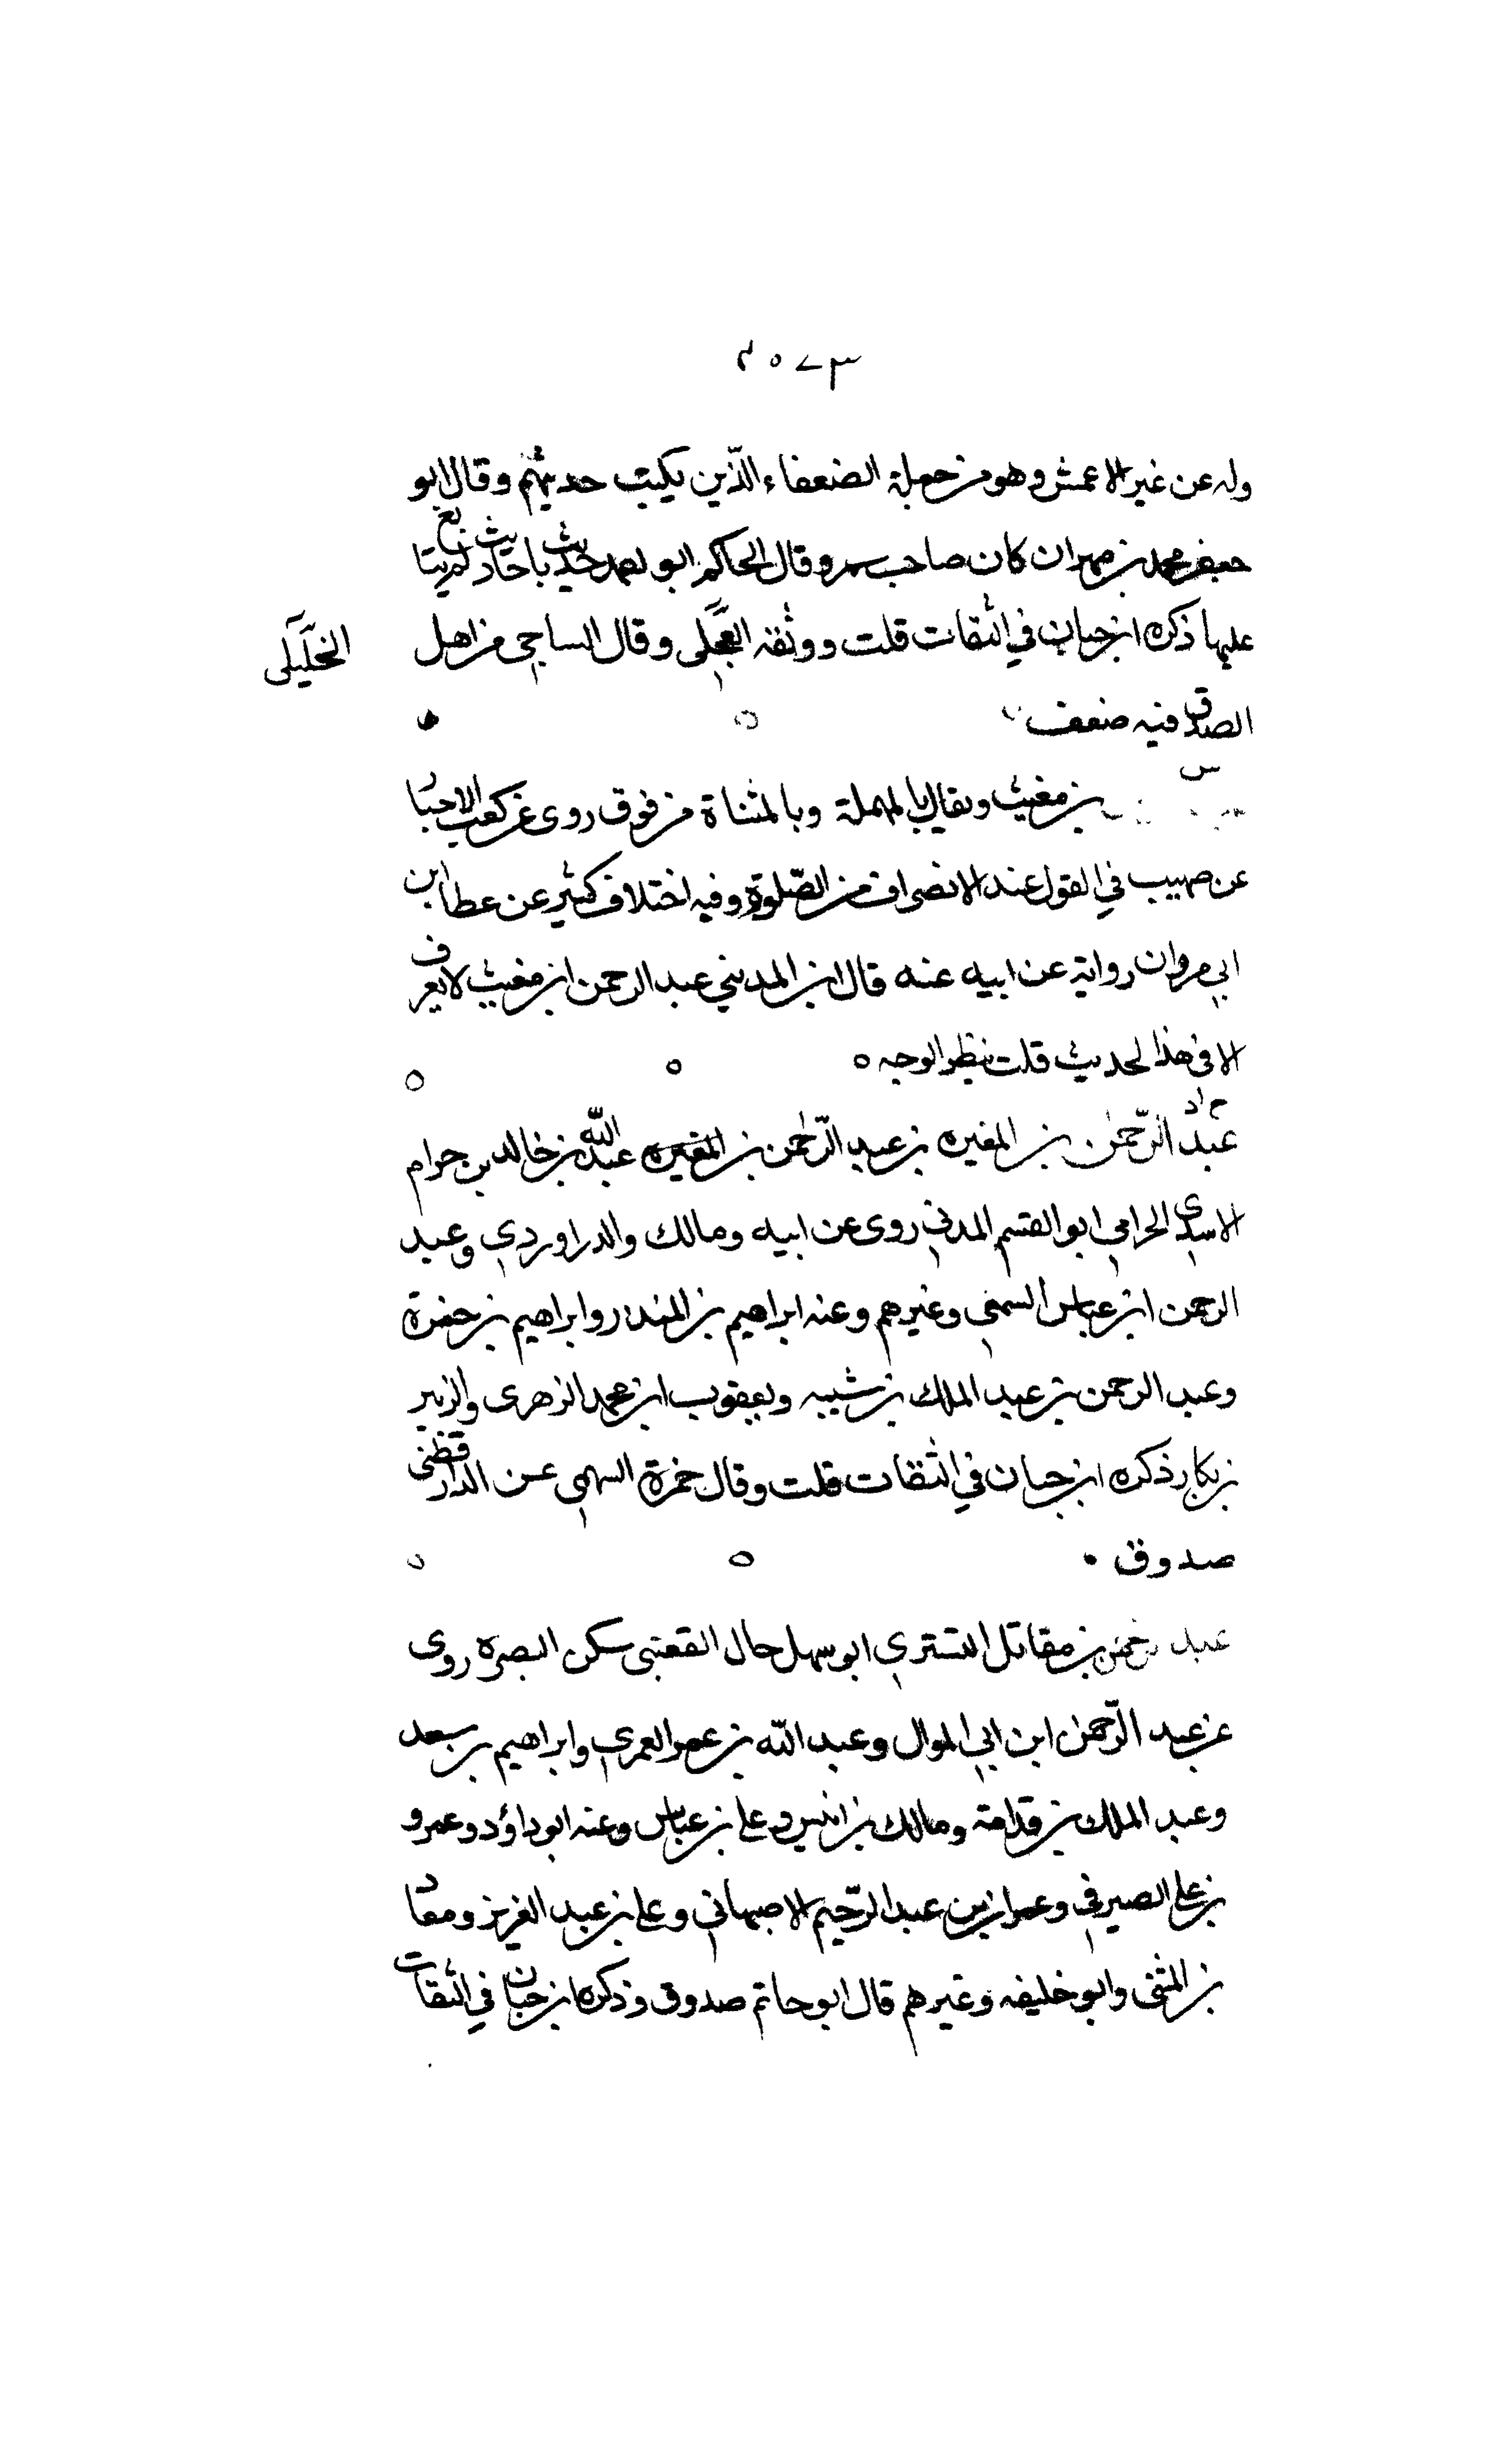 ٣٧٥٢
وله عن غير الاعمش وهو من جملة الضعفاء الذّين يكتب حديثهم وقال ابو
جعفر محمد بن مهران كان صاحب سمر وقال الحاكم ابو احمد حديث باحاديث لم يتابع
عليها ذكره ابن حبان في الثقات قلت ووثقه العجلى وقال الساجى من اهل
الخليلى
الصدق فيه ضعف
س
بن مغيث ويقال بالمهملة وبالمثناة من فوق روى عن كعب الاحبار
عن صهيب في القول عند الانصراف من الصّلوة وفيه اختلاف كثير عن عطا ابن
ابي مروان رواية عن ابيه عنه قال ابن المديني عبد الرحمن ابن مغيث لا يعرف
الا في هذا لحديث قلت ينظر الوجه ٥
عبد الرّحمن بن المغيره بن عبد الرّحمن بن المغيره عبد الله بن خالد بن حرام
الاسدى الحرامي ابو القسم المدني روى عن ابيه ومالك والدراوردي وعبد
الرحمن ابن عياس السمعي وغيرهم وعنه ابراهيم بن المنذر وابراهيم بن حمزة
وعبد الرحمن بن عبد الملك بن شيبه ويعقوب ابن محمد الزهرى والزبير
بن بكار ذكره ابن حبان في الثقات قلت وقال حمزة السهمى عن الدارقطنى
صدوق
عبد رحمن بن مقاتل التستري ابو سهل خال القعنبى سكن البصره روى
عن عبد الرّحمن ابن ابي الموال وعبد اللّه بن عمر العمري وابراهيم بن سعد
وعبد الملك بن قدامة ومالك بن انيس وعلى بن عياس وعنه ابو داؤد وعمرو
بن على الصيرفي وعمران بن عبد الرّحيم الاصبهاني وعلى بن عبد العزيز ومعاذ
بن المثنى وابو خليفه وغيرهم قال ابو حاتم صدوق وذكره ابن حبان في الثقات